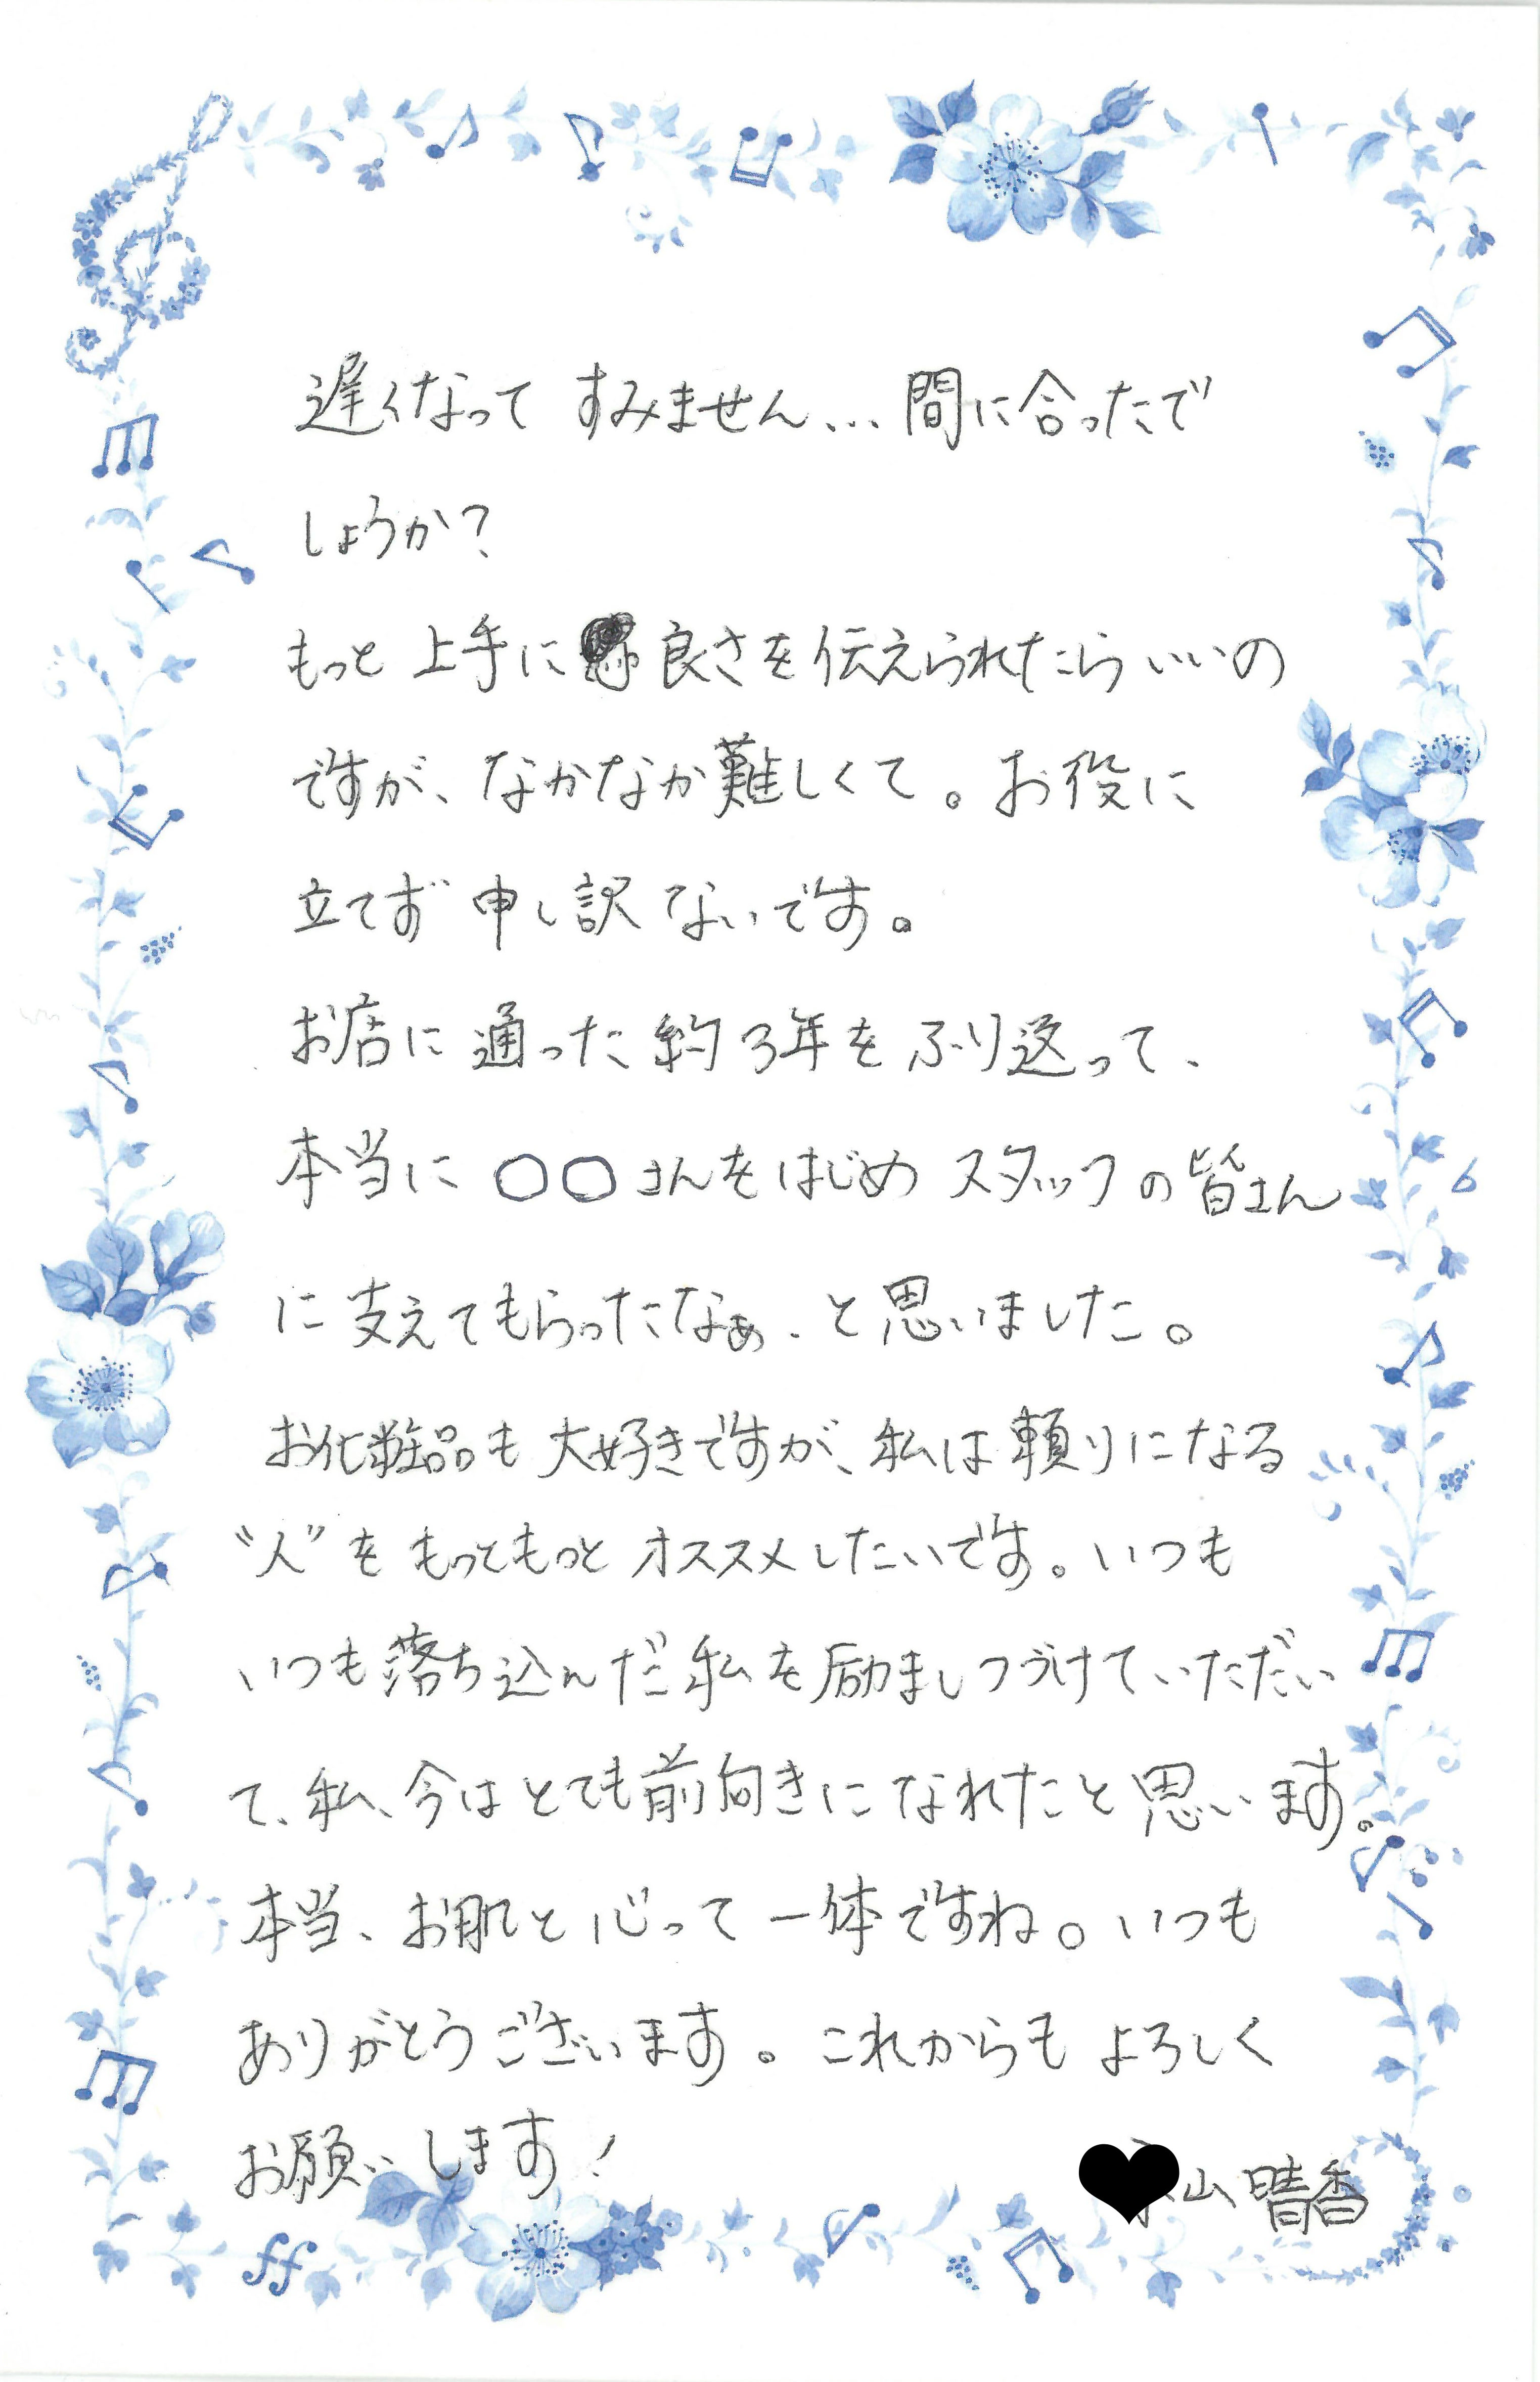 遅くなって すみません... 間に合ったで
しょうか?
もっと 上手に 良さを伝えられたらいいの
ですが、なかなか難しくて。お役に
立てず 申し訳ないです。
お店に通った約3年をふり返って、
本当に ○○さんをはじめ スタッフの皆さん
に支えてもらったなぁ、と思いました。
お化粧品も大好きですが、私は頼りになる
“人”を もっともっと オススメしたいです。いつも
いつも落ち込んだ私を励ましつづけていただい
て、私、今はとても前向きになれたと思います。
本当、お肌と心って一体ですね。いつも
ありがとうございます。これからも よろしく
お願いします!
山 晴香
ff